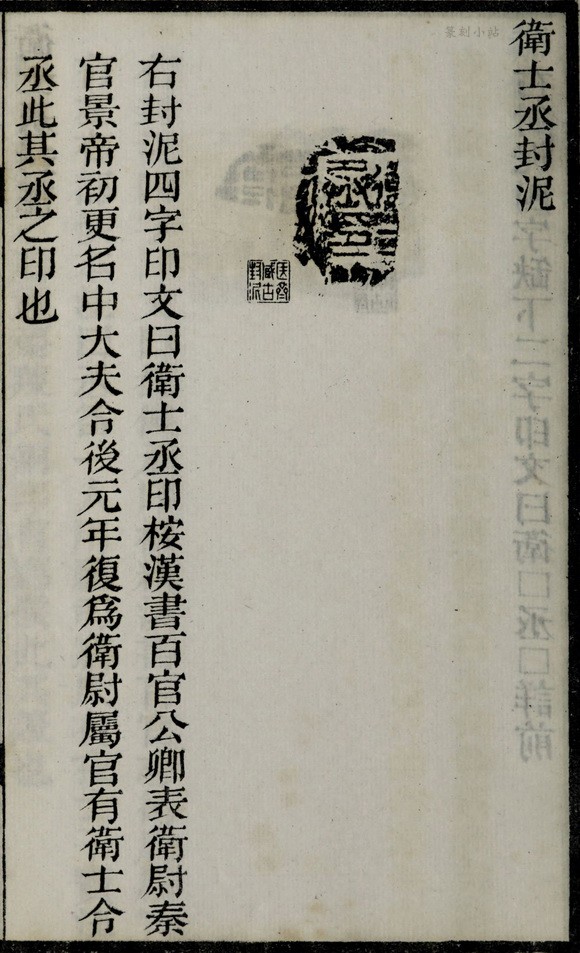 衛士丞封泥
右封泥四字印文曰衛士丞印桉漢書百官公卿表衛尉秦
官景帝初更名中大夫令後元年復爲衛尉屬官有衛士令
丞此其丞之印也
篆刻小站